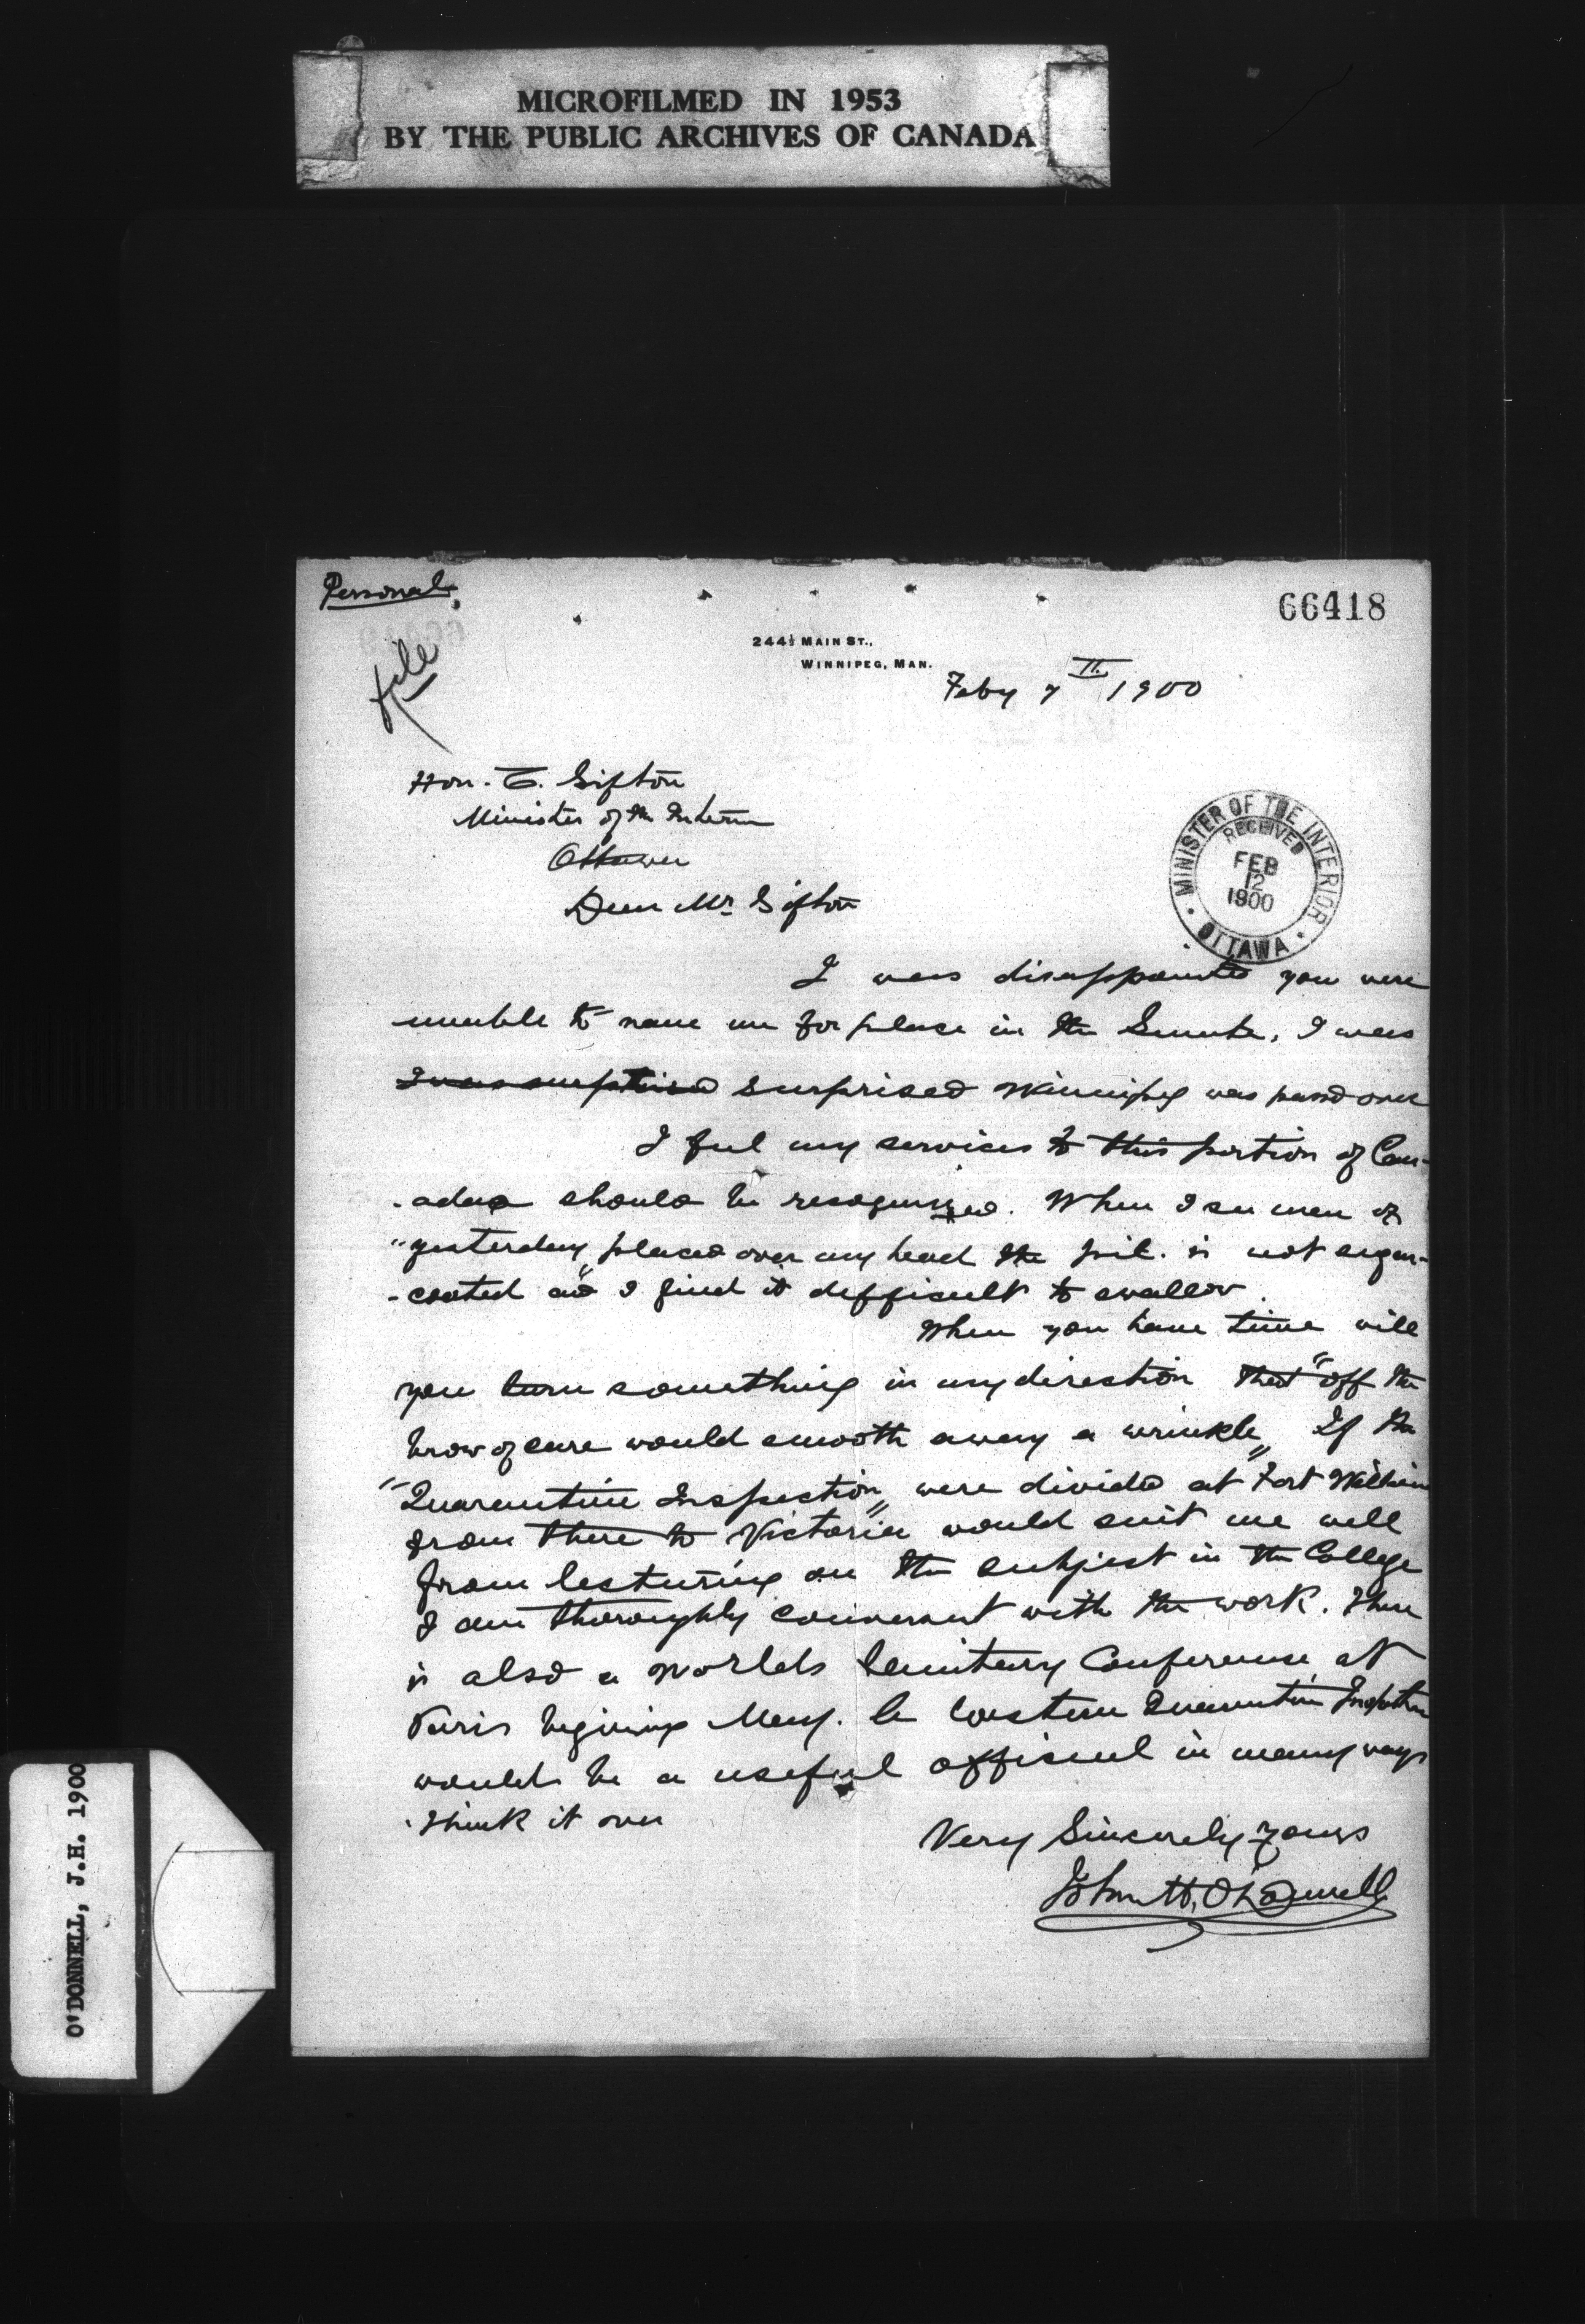 MICROFILMED IN 1953
BY THE PUBLIC ARCHIVES OF CANADA
Personal,
66418
File
244½ MAIN ST.,
WINNIPEG, MAN.
Feby 7th 1900
Hon. C. Sifton
Minister of the Interior
Ottawa
Dear Mr Sifton
MINISTER OF THE INTERIOR
RECEIVED
FEB
12
1900
OTTAWA
I was disappointed you were
unable to name me for place in the Senate, I was
I was surprised surprised Winnipeg was passed over
I feel my services to this portion of Can-
-ada should be recognized. When I see men of
"yesterday" placed over my head the pil. is not sugar-
-coated and I find it difficult to swallow.
When you have time will
you turn something in my direction that "off the
brow of care would smooth away a wrinkle" If the
"Quarantine Inspection" were divided at Fort William
from there to Victoria would suit me well
from lecturing on the subject in the College
I am thoroughly conversant with the work. There
is also a worlds Sanitary Conference at
Paris begining May. A Western Quarantine Inspector
would be a useful official in many ways
Think it over
Very Sincerely Yours
John H. O'Donnell
O'DONNELL, J.H. 1900